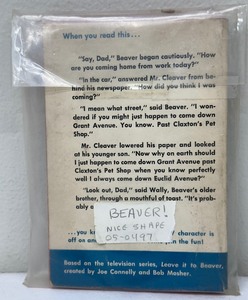 When you read this...
"Say, Dad," Beaver began cautiously. "How
are you coming home from work today?"
"In the car," answered Mr. Cleaver from be-
hind his newspaper. "How did you think I was
coming?"
"I mean what street," said Beaver. "I won-
dered if you might just happen to come down
Grant Avenue. You know. Past Claxton's Pet
Shop."
Mr. Cleaver lowered his paper and looked
at his younger son. "Now why on earth should
I just happen to come down Grant Avenue past
Claxton's Pet Shop when you know perfectly
well I always come down Euclid Avenue?"
"Look out, Dad," said Wally, Beaver's older
brother, through a mouthful of toast. "It's prob-
ably a
BEAVER!
NICE SHAPE
05-0497
...you
character is
off on an
in the fun!
Based on the television series, Leave it to Beaver,
created by Joe Connelly and Bob Mosher.